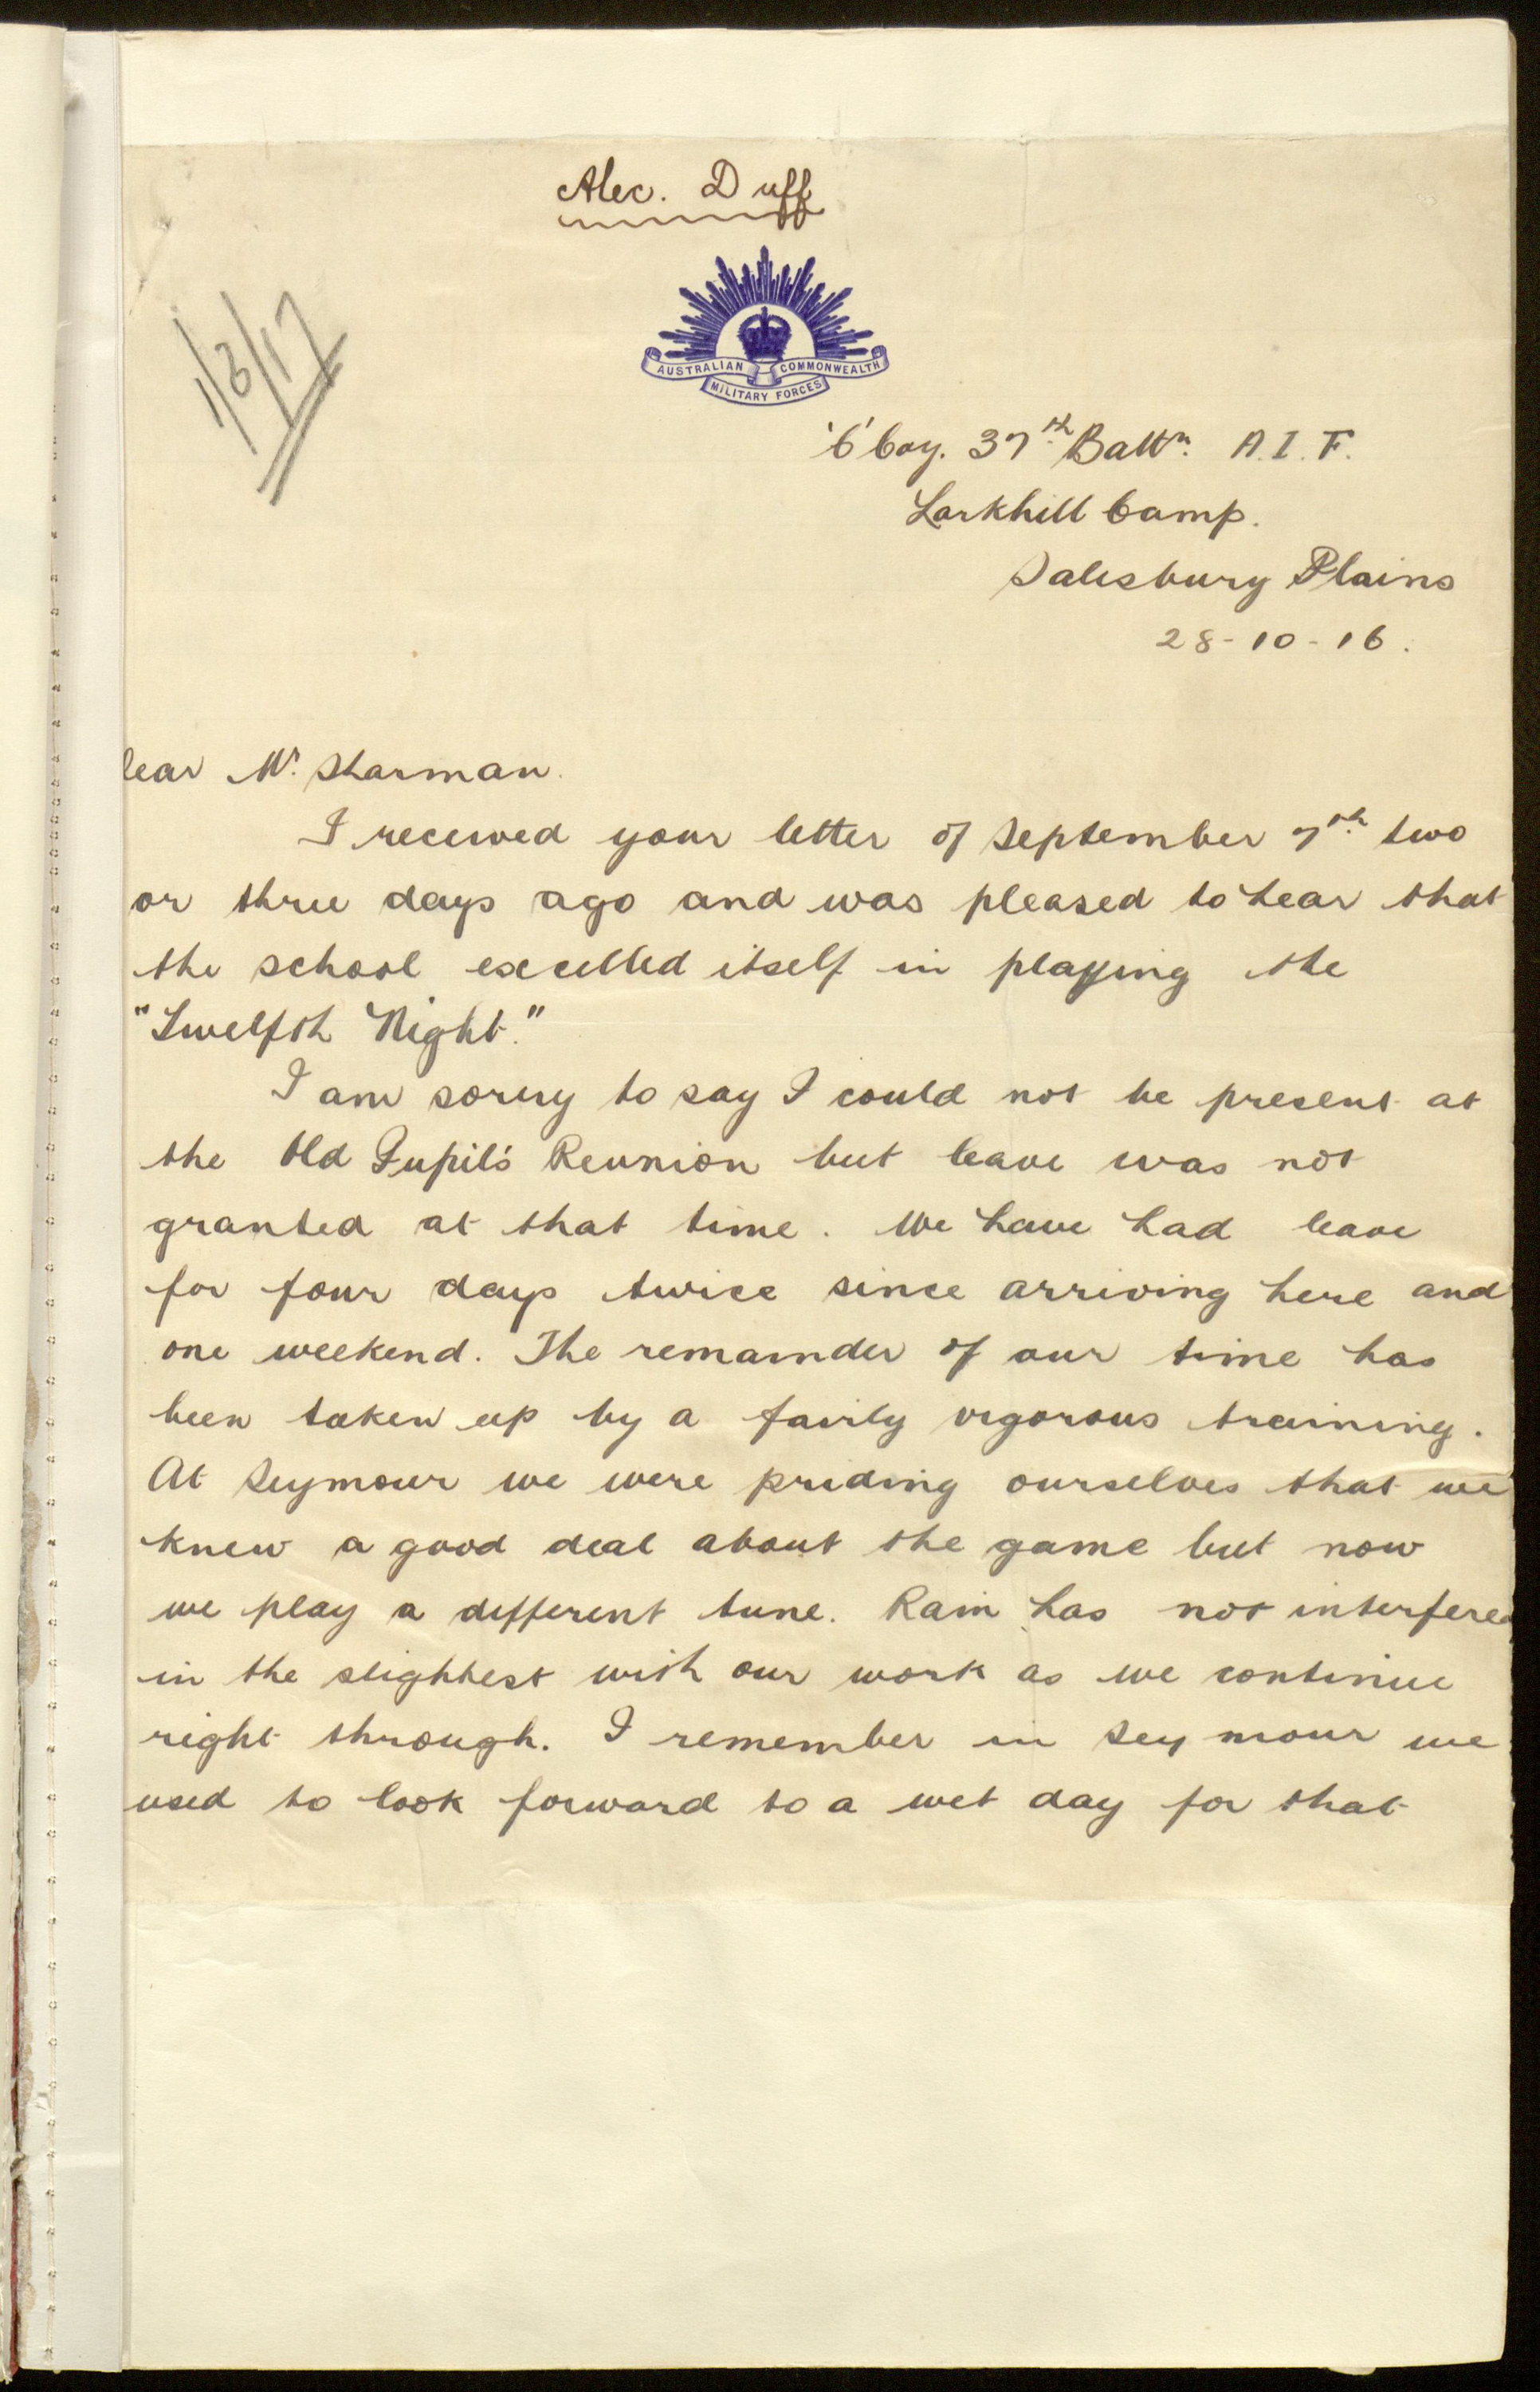 Alec. Duff
1/3/17
AUSTRALIAN COMMONWEALTH
MILITARY FORCES
'C' Coy. 37th Battn. A.I.F.
Larkhill Camp.
Salisbury Plains
28-10-16.
ear Mr. Sharman.
I received your letter of September 7th two
or three days ago and was pleased to hear that
the school excelled itself in playing the
"Twelfth Night."
I am sorry to say I could not be present at
the Old Pupil's Reunion but leave was not
granted at that time. We have had leave
for four days twice since arriving here and
one weekend. The remainder of our time has
been taken up by a fairly vigorous training.
At Seymour we were priding ourselves that we
knew a good deal about the game but now
we play a different tune. Rain has not interfered
in the slightest with our work as we continue
right through. I remember in Seymour we
used to look forward to a wet day for that